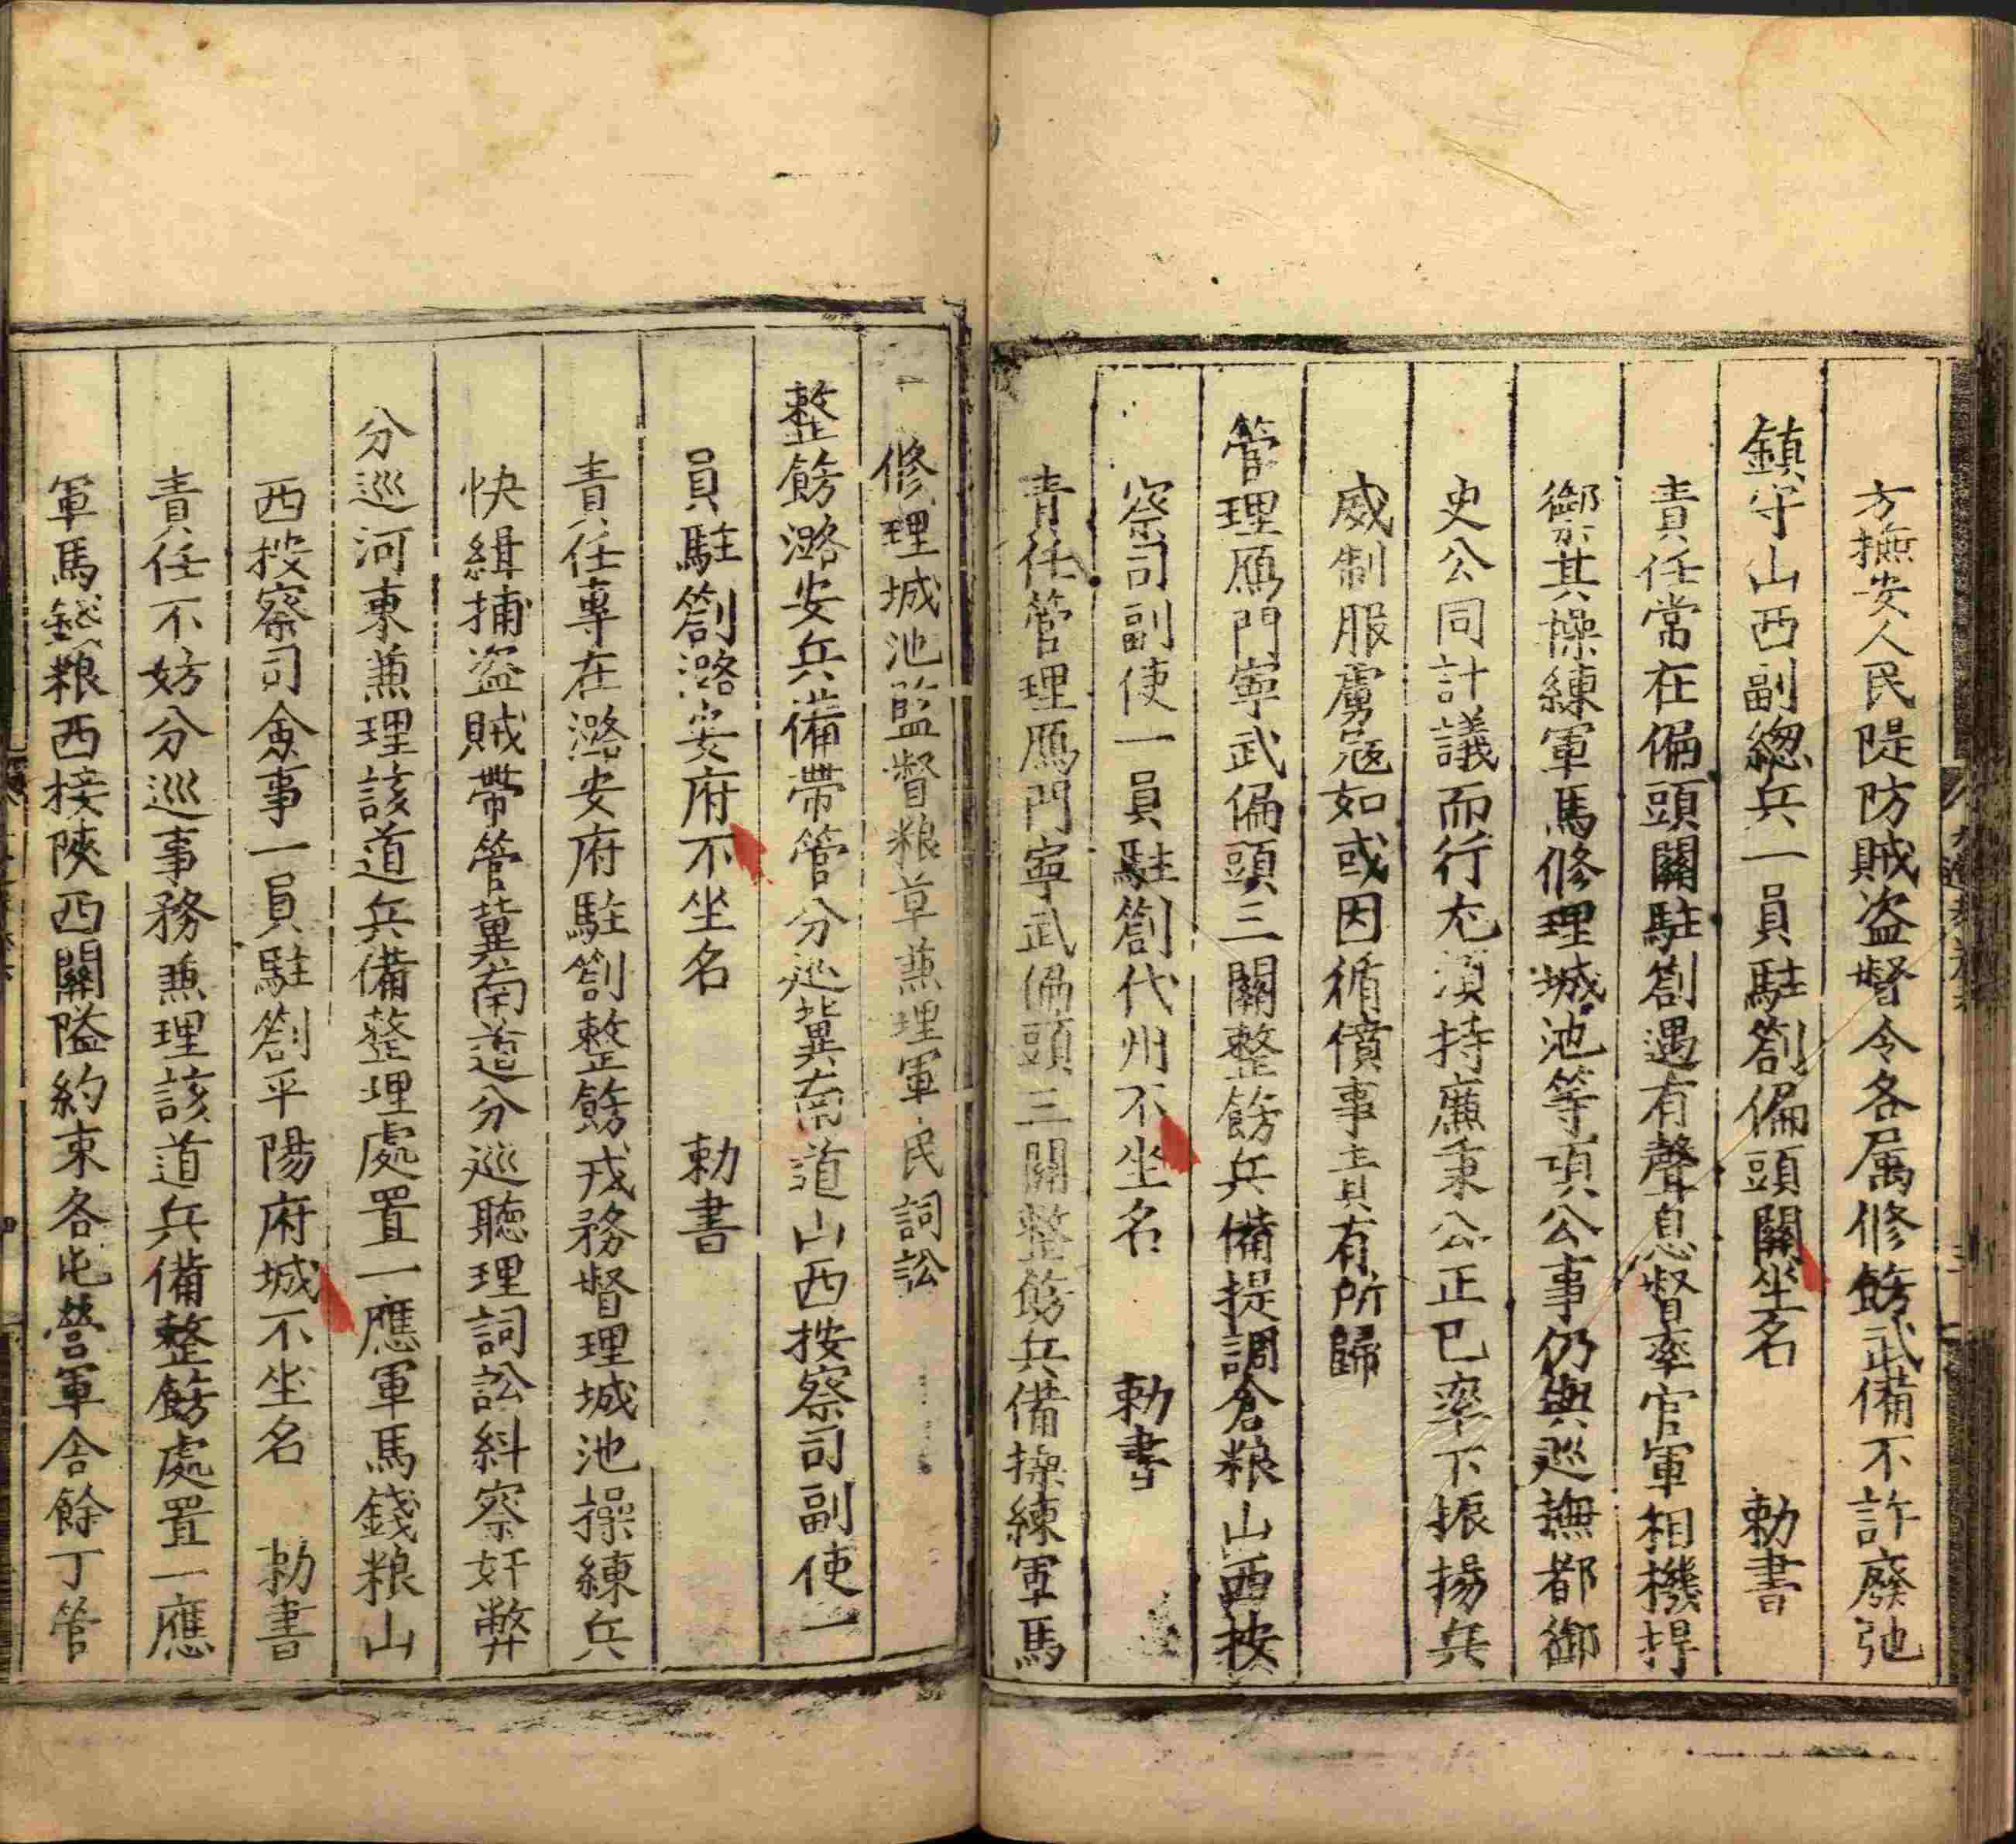 方撫安人民隄防賊盗督令各属修飭武備不許廢弛
鎮守山西副總兵一員駐劄偏頭關坐名　勅書
責任常在偏頭關駐劄遇有聲息督率官軍相機捍
禦其操練軍馬修理城池等項公事仍與巡撫都御
史公同計議而行尤湏持廉秉公正已率下振揚兵
威制服虜冦如或因循僨事責有所歸
管理鴈門寧武偏頭三關整飭兵備提調倉粮山西按
察司副使一員駐劄代州不坐名　勅書
責任管理鴈門寧武偏頭三關整飭兵備操練軍馬
修理城池監督粮草兼理軍民詞訟
整飭潞安兵備帶管分巡兾南道山西按察司副使一
員駐劄潞安府不坐名　勅書
責任專在潞安府駐劄整飭戎務督理城池操練兵
快緝捕盗賊帶管兾南道分巡聽理詞訟糾察奸弊
分巡河東兼理該道兵備整理處置一應軍馬錢粮山
西按察司僉事一員駐劄平陽府城不坐名　勅書
責任不妨分巡事務兼理該道兵備整飭處置一應
軍馬錢粮西接陝西關隘約束各屯營軍舍餘丁管